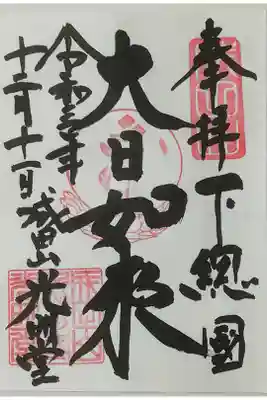 奉拝　下総國
大日如来
令和三年
十二月十一日
成田山
光明堂